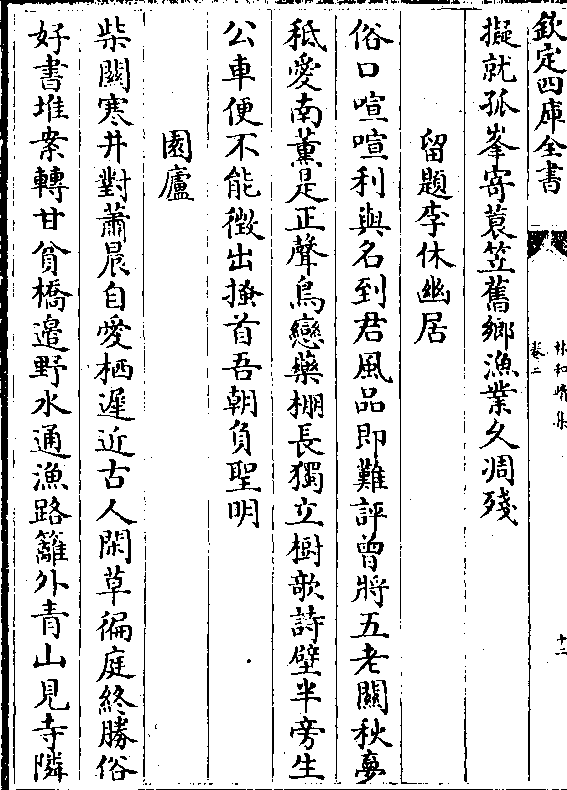 欽定四庫全書
林和靖集
卷二
十二
擬就孤峯寄蓑笠舊鄉漁業久凋殘
留題李休幽居
俗口喧喧利與名到君風品即難評曾將五老關秋夢
秪愛南薰是正聲鳥戀藥棚長獨立樹欹詩壁半旁生
公車便不能徵出搔首吾朝負聖明
園廬
柴關寒井對蕭晨自愛栖遲近古人閑草徧庭終勝俗
好書堆案轉甘貧橋邉野水通漁路籬外青山見寺隣